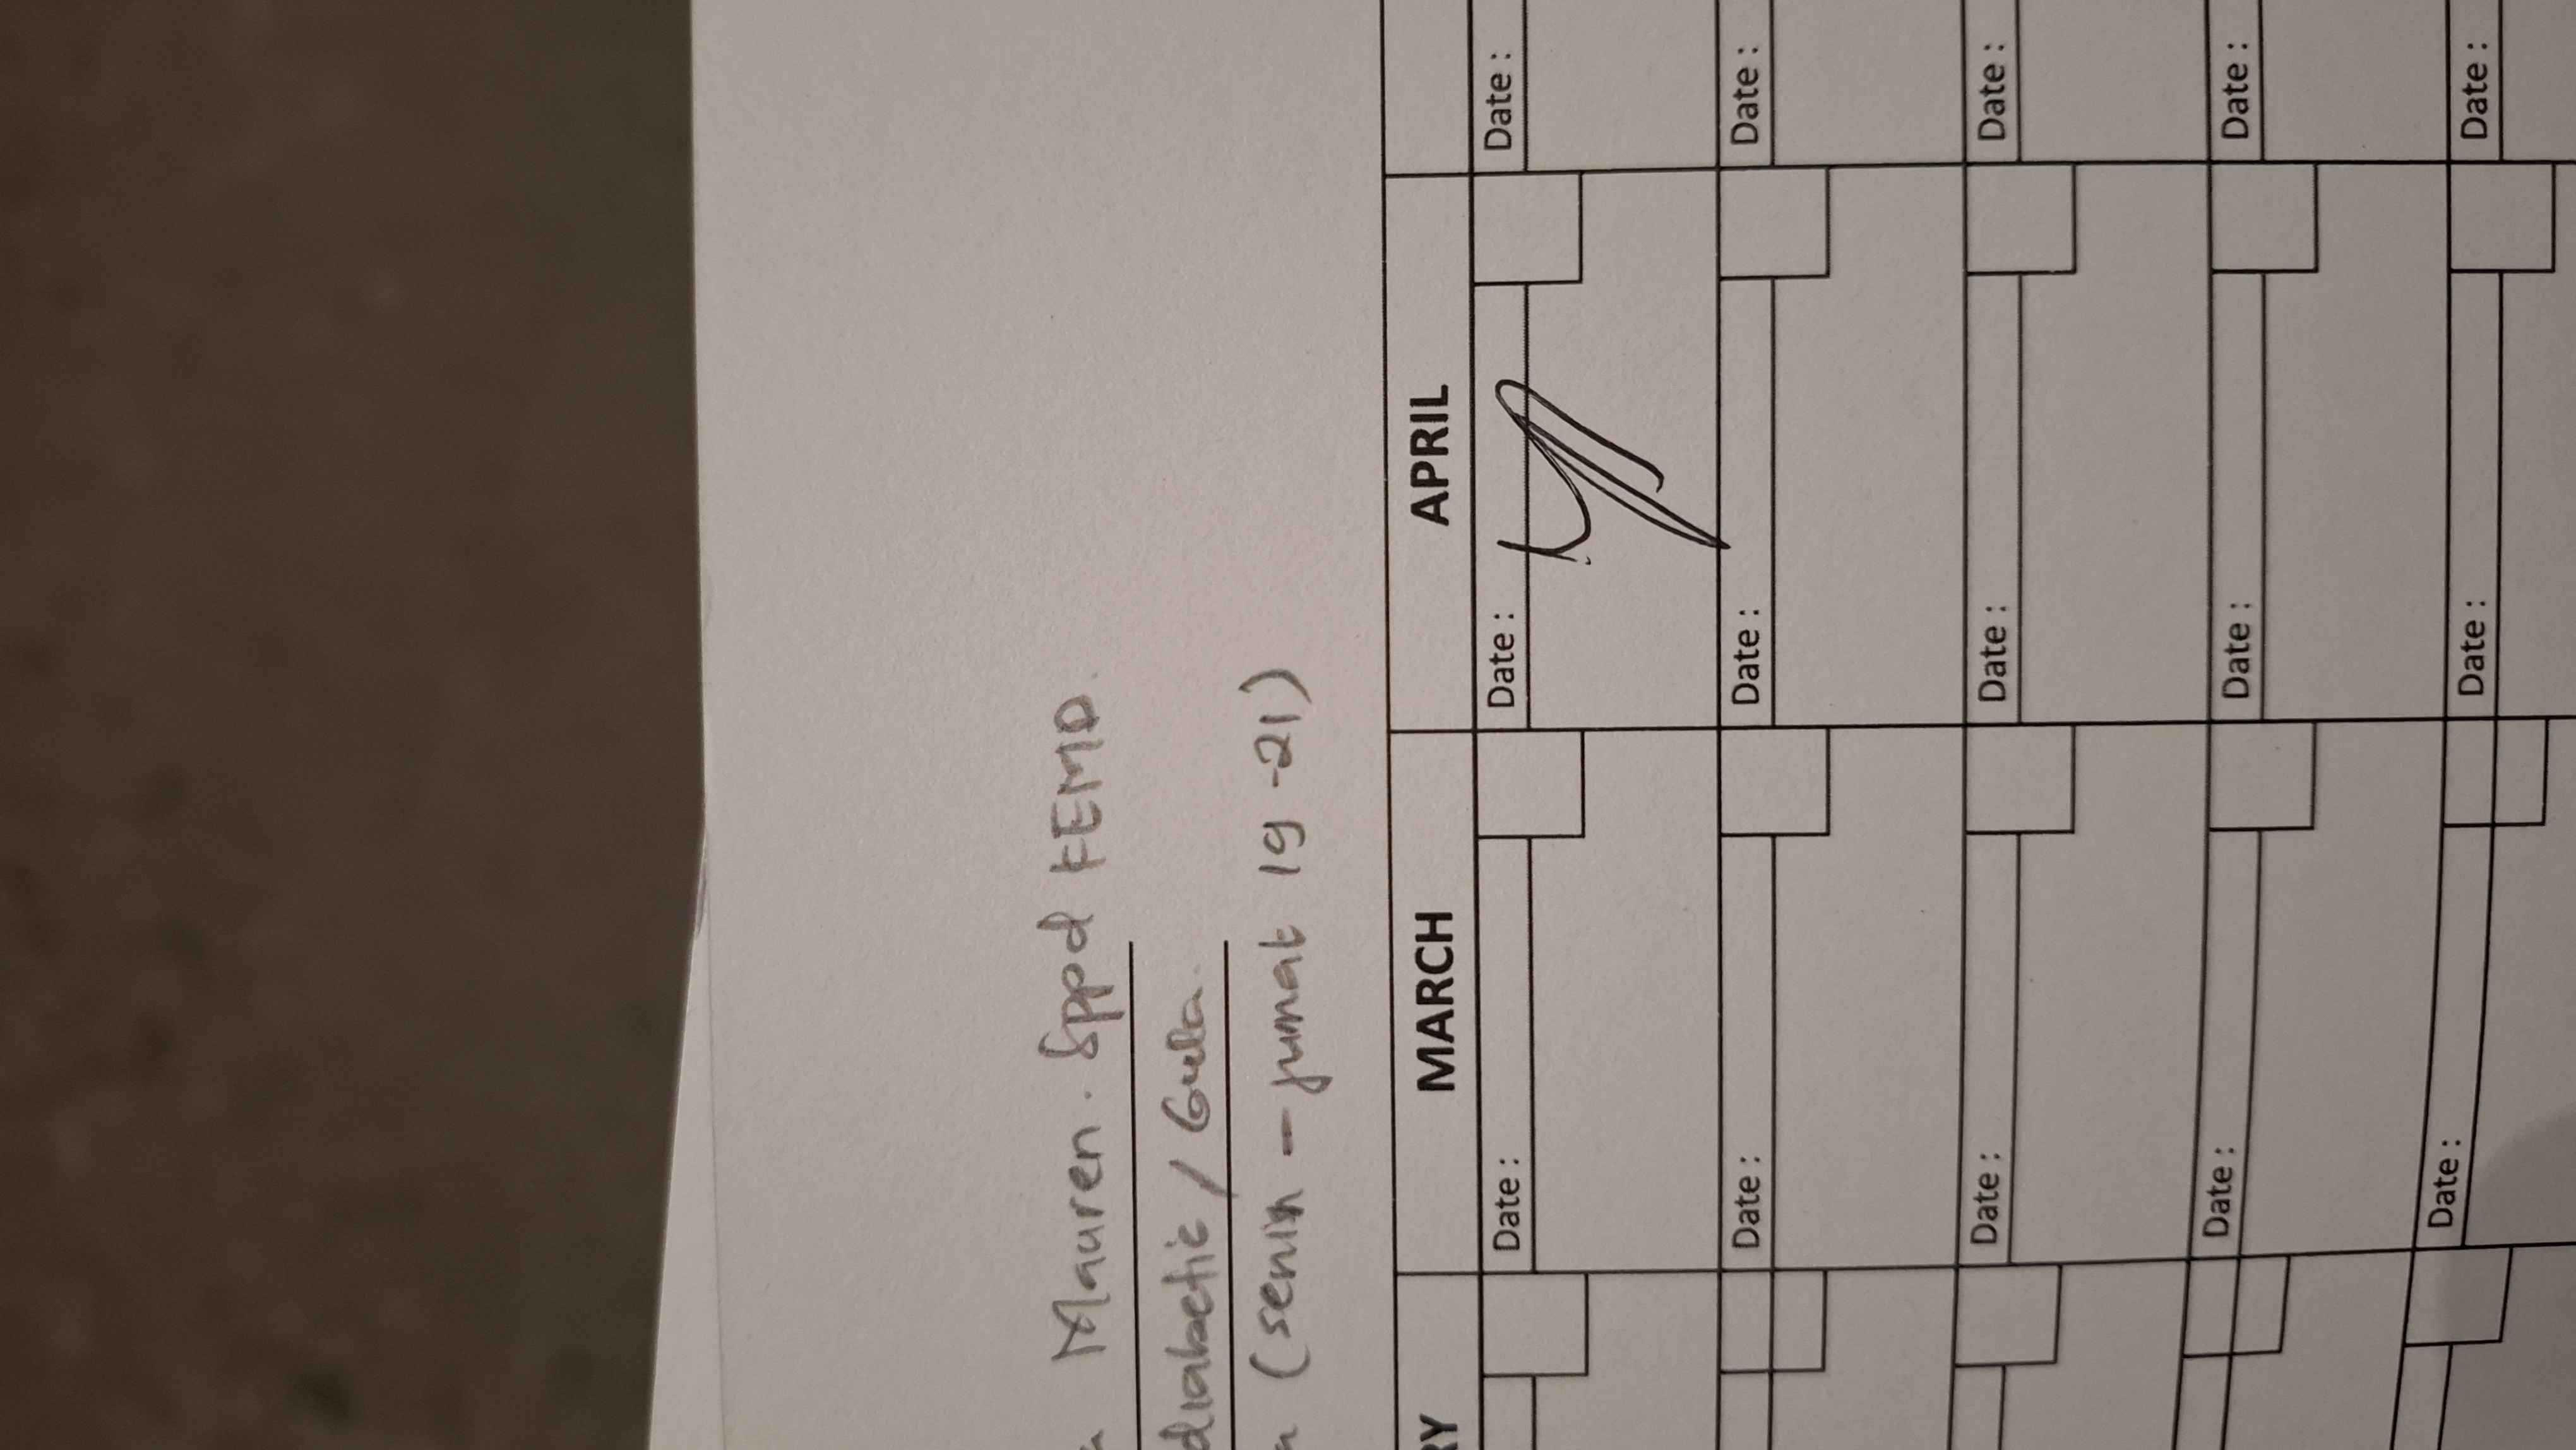 Mauren. Sppd KEMD.
diabetic / Gula.
(senin - jumat 19 - 21)
MARCH APRIL
Date : Date : Date :
Date : Date : Date :
Date : Date : Date :
Date : Date : Date :
Date : Date : Date :